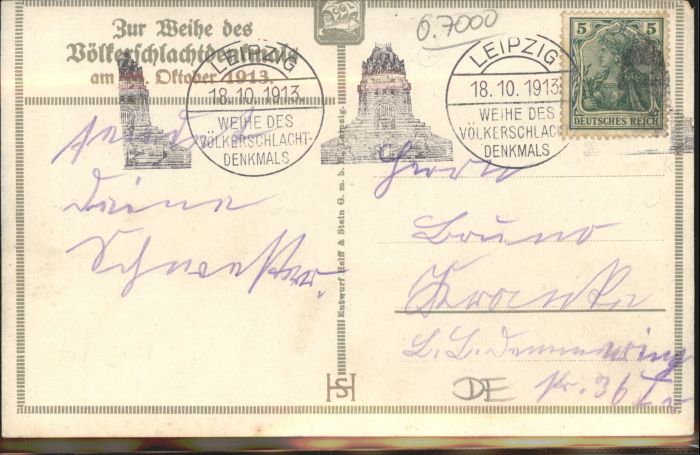 Zur Weihe des
Völkerschlachtdenkmals
am 18. Oktober 1913.
6.7000
LEIPZIG
18.10.1913.
WEIHE DES
VÖLKERSCHLACHT-
DENKMALS
LEIPZIG
18.10.1913.
WEIHE DES
VÖLKERSCHLACHT-
DENKMALS
5 5
DEUTSCHES REICH
Deine
Schwester.
Entwurf Helff & Stein G. m. b. H. Leipzig.
Herrn
Bruno
L. L.
Nr. 36
HS
DE